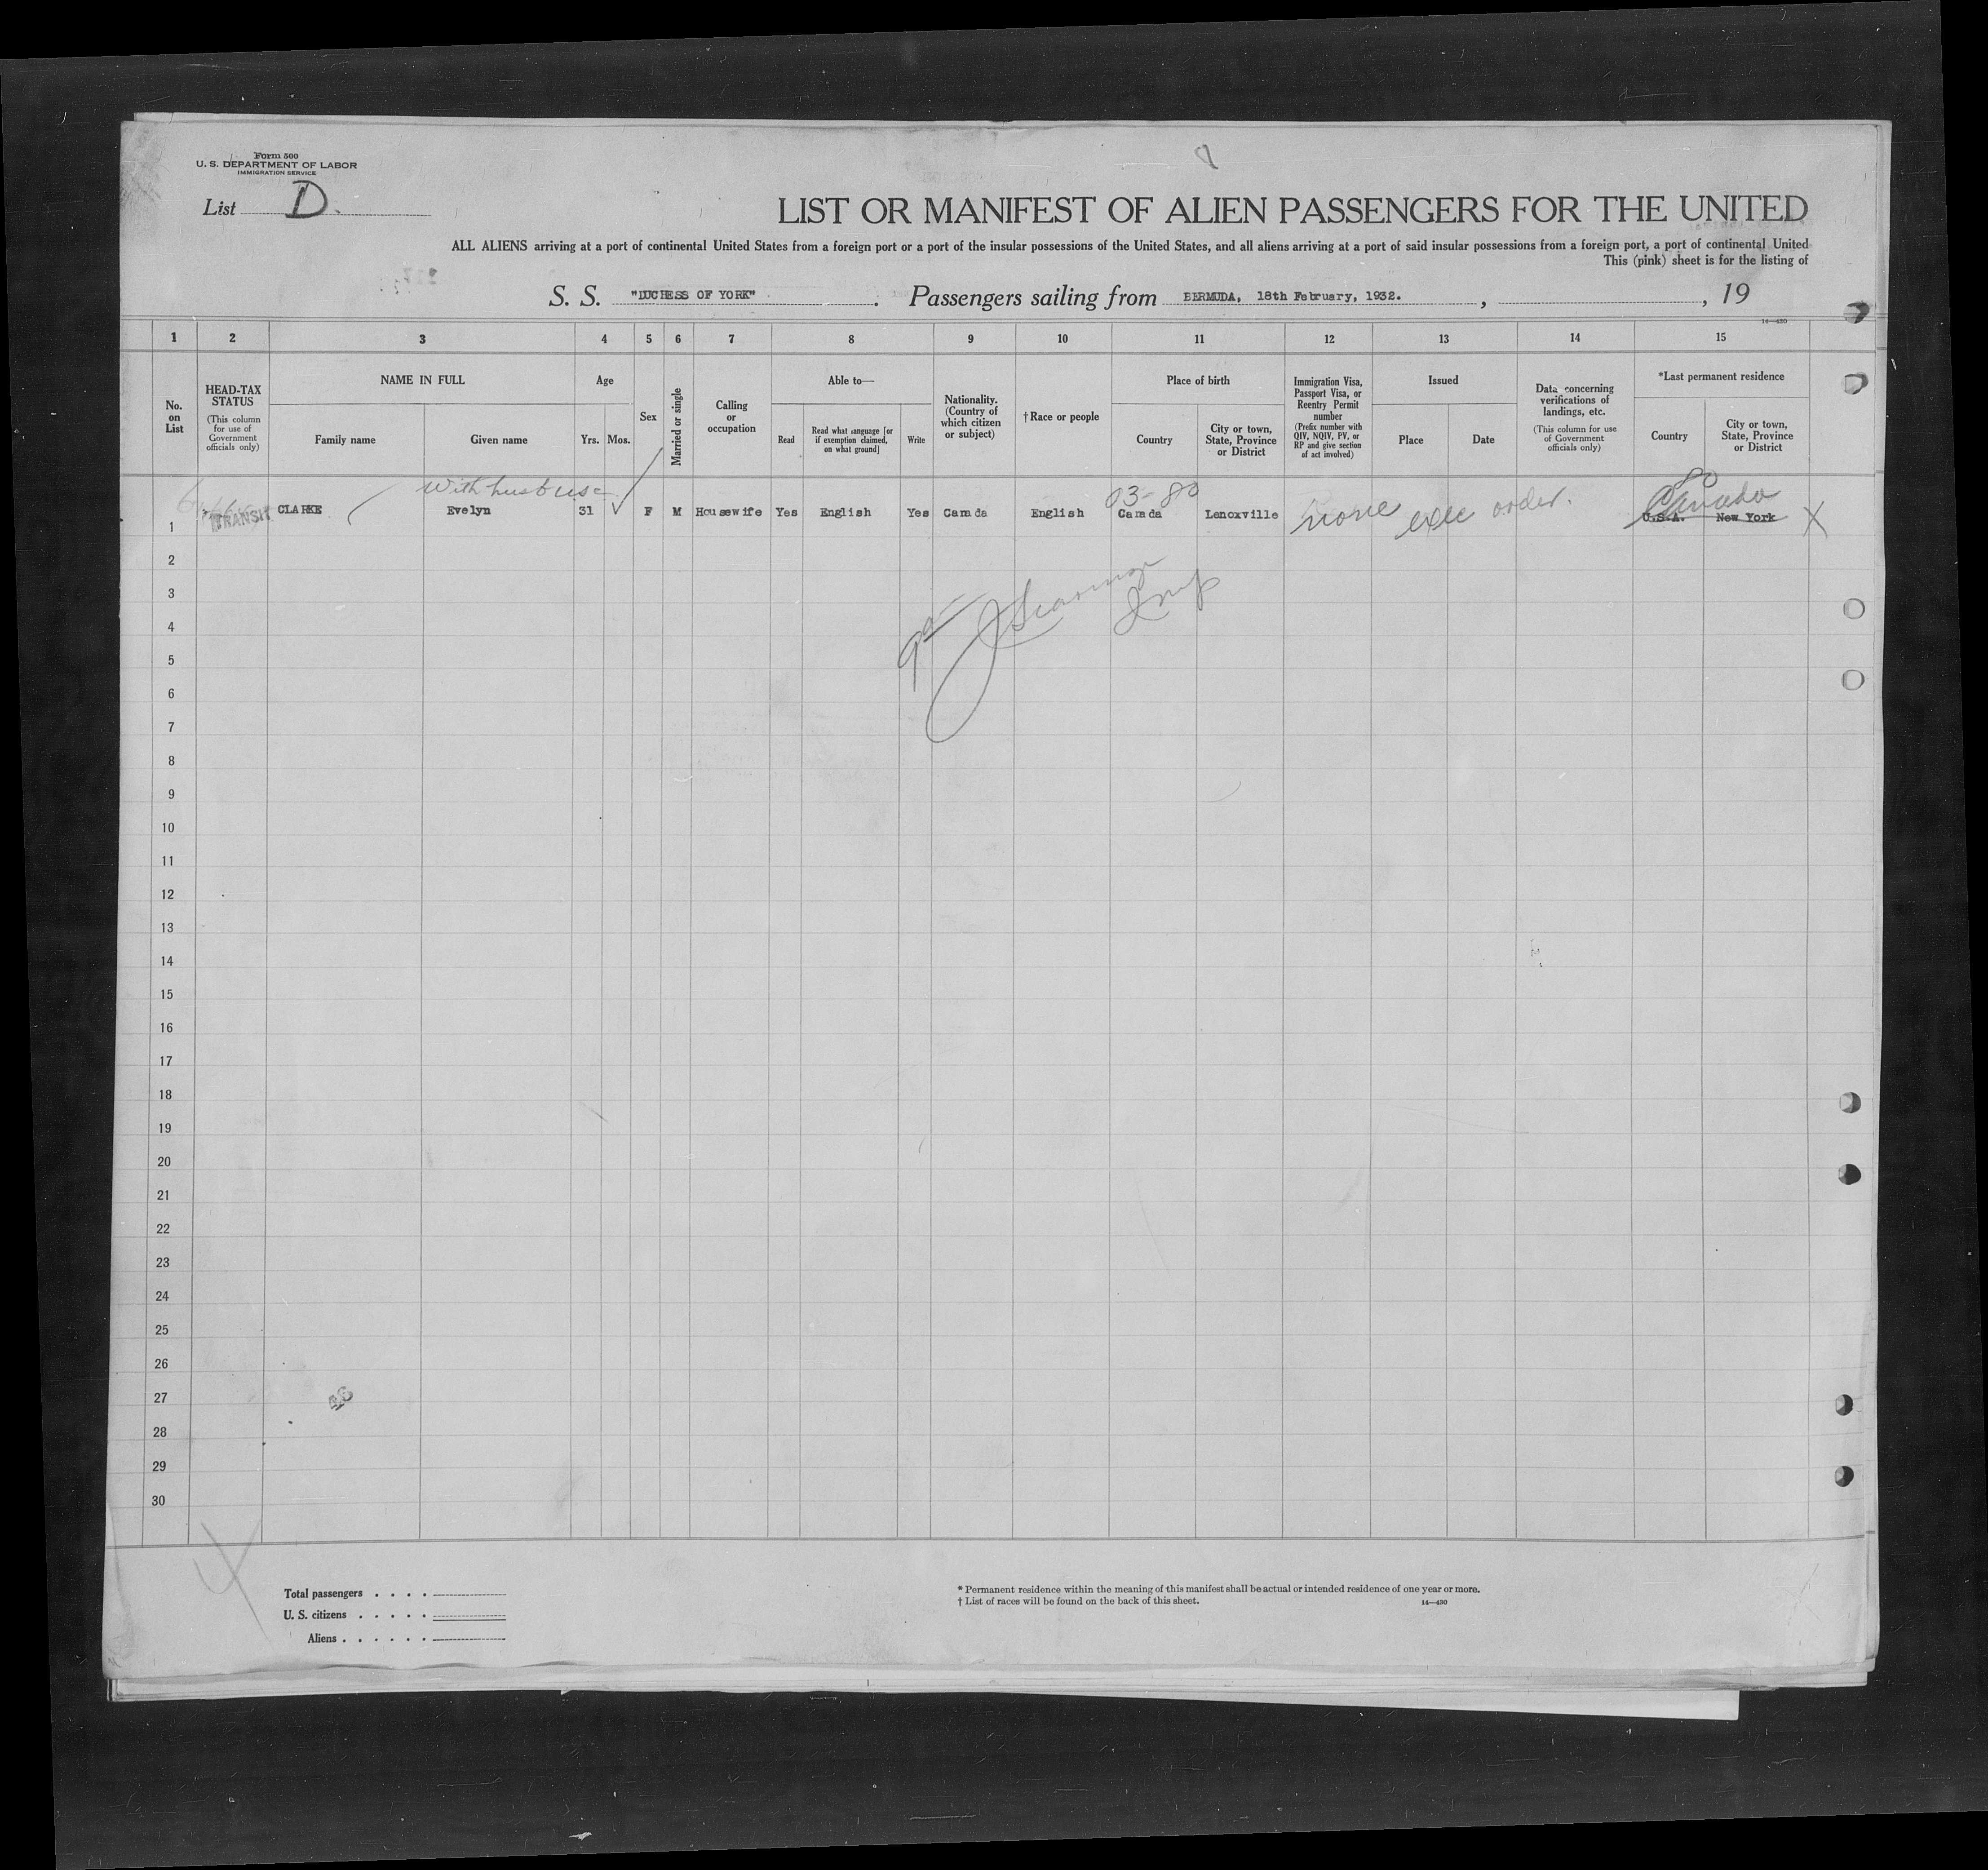 Form 500
U. S. DEPARTMENT OF LABOR
IMMIGRATION SERVICE
List D.
LIST OR MANIFEST OF ALIEN PASSENGERS FOR THE UNITED
ALL ALIENS arriving at a port of continental United States from a foreign port or a port of the insular possessions of the United States, and all aliens arriving at a port of said insular possessions from a foreign port, a port of continental United
This (pink) sheet is for the listing of
S. S. "DUCHESS OF YORK". Passengers sailing from BERMUDA, 18th February, 1932. , , 19
14—430
1 2 3 4 5 6 7 8 9 10 11 12 13 14 15
No. on List
HEAD-TAX STATUS (This column for use of Government officials only)
NAME IN FULL
Family name
Given name
Age
Yrs. Mos.
Sex
Married or single
Calling or occupation
Able to—
Read
Read what language [or if exemption claimed, on what ground]
Write
Nationality. (Country of which citizen or subject)
†Race or people
Place of birth
Country
City or town, State, Province or District
Immigration Visa, Passport Visa, or Reentry Permit number (Prefix number with QIV, NQIV, PV, or RP and give section of act involved)
Issued
Place
Date
Data concerning verifications of landings, etc. (This column for use of Government officials only)
*Last permanent residence
Country
City or town, State, Province or District
With husb 03-80 80
1 TRANSIT CLARKE Evelyn 31 F M Housewife Yes English Yes Canada English Canada Lenoxville none exec order. Canada U.S.A. New York X
2
3
4
5
6
7
8
9
10
11
12
13
14
15
16
17
18
19
20
21
22
23
24
25
26
27
28
29
30
Total passengers . . . .
U. S. citizens . . . . .
Aliens . . . . . .
* Permanent residence within the meaning of this manifest shall be actual or intended residence of one year or more.
† List of races will be found on the back of this sheet. 14—430